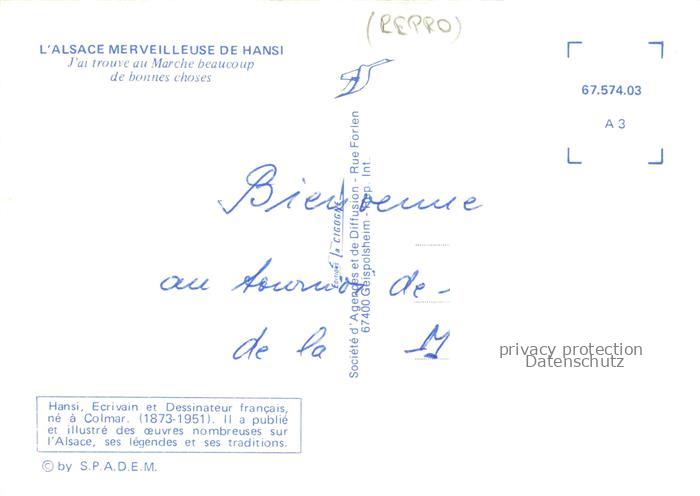 (REPRO)
L'ALSACE MERVEILLEUSE DE HANSI
J'ai trouvé au Marche beaucoup
de bonnes choses
67.574.03
A 3
Bienvenue
au tournoi de -
de la M
Editions la CIGOGNE
Société d'Agences et de Diffusion - Rue Forlen
67400 Geispolsheim - Rep. Int.
privacy protection
Datenschutz
Hansi, Ecrivain et Dessinateur français,
né à Colmar. (1873-1951). Il a publié
et illustré des œuvres nombreuses sur
l'Alsace, ses légendes et ses traditions.
© by S.P.A.D.E.M.